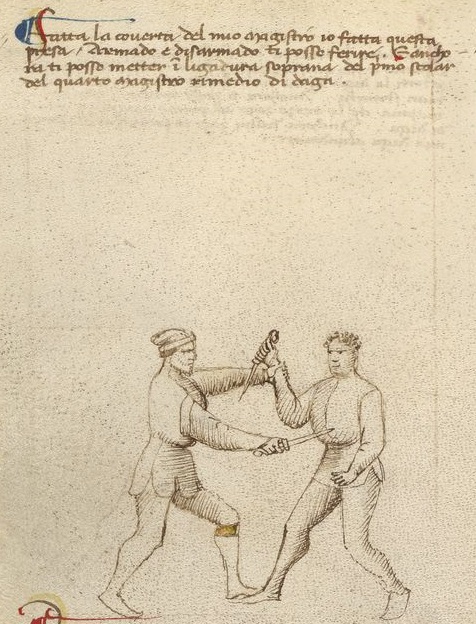 Fatta la coverta del mio magistro io fatta questa
presa / Armado e disarmado ti posso ferire. E ancho-
ra ti posso metter i ligadura soprana del pmo scolar
del quarto magistro rimedio di daga.